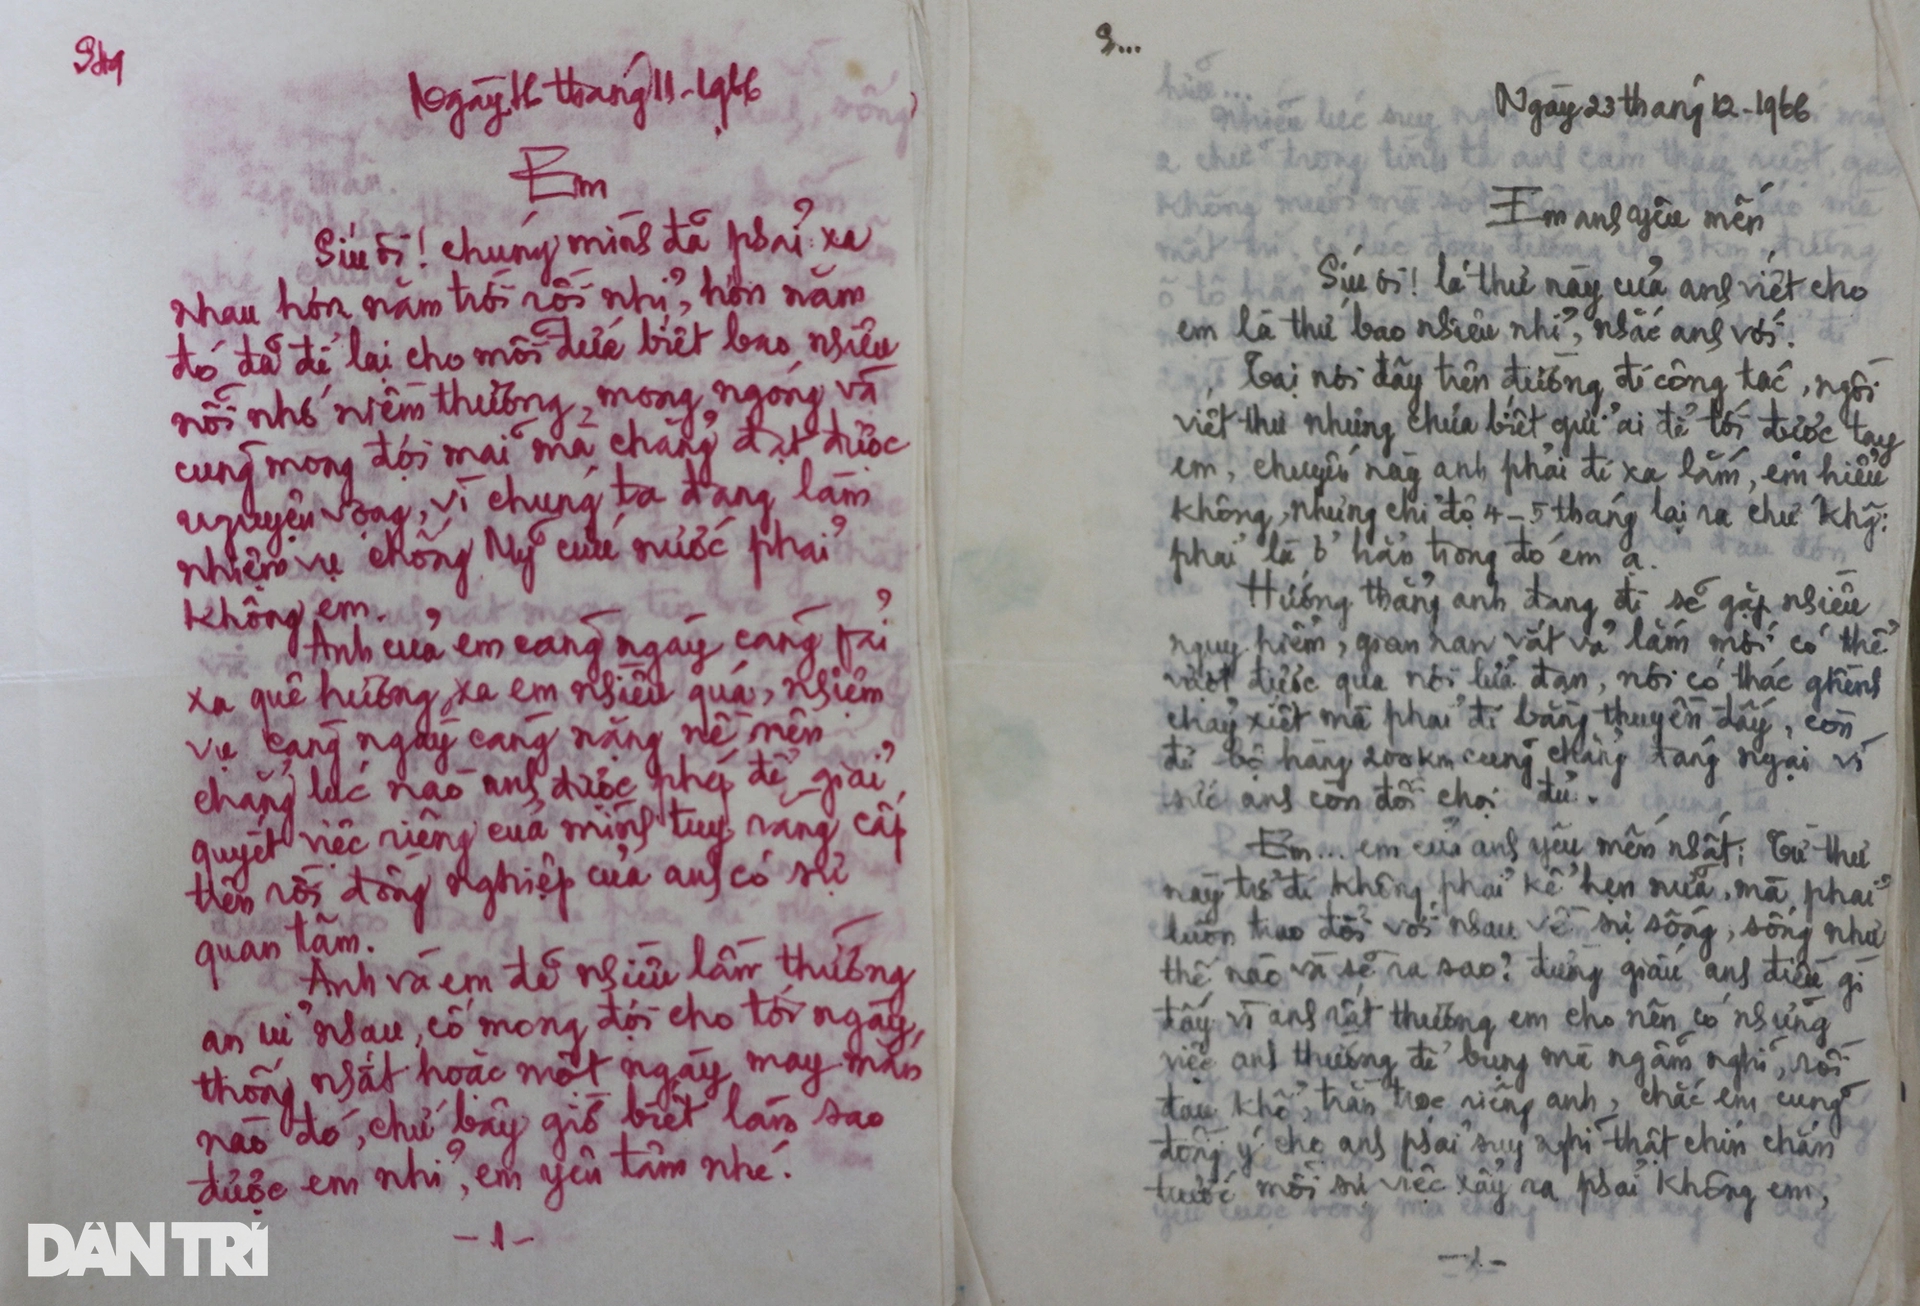 Ngày 16 tháng 11-1966
Em
Síu ơi! chúng mình đã phải xa
nhau hơn năm trời rồi nhỉ, hơn năm
đó đã để lại cho mỗi đứa biết bao nhiêu
nỗi nhớ niềm thương, mong ngóng và
cũng mong đợi mãi mà chẳng đạt được
nguyện vọng, vì chúng ta đang làm
nhiệm vụ chống Mỹ cứu nước phải
không em.
Anh của em càng ngày càng phải
xa quê hương, xa em nhiều quá, nhiệm
vụ càng ngày càng nặng nề nên
chẳng lúc nào anh được phép để giải
quyết việc riêng của mình tuy rằng cấp
trên rồi đồng nghiệp của anh có sự
quan tâm.
Anh và em đã nhiều lần thường
an ủi nhau, cố mong đợi cho tới ngày
thống nhất hoặc một ngày may mắn
nào đó, chứ bây giờ biết làm sao
được em nhỉ, em yên tâm nhé.
-1-
S...
Ngày 23 tháng 12-1966
Em anh yêu mến
Síu ơi! lá thư này của anh viết cho
em là thư bao nhiêu nhỉ, nhắc anh với.
Tại nơi đây trên đường đi công tác, ngồi
viết thư nhưng chưa biết gửi ai để tới được tay
em, chuyến này anh phải đi xa lắm, em hiểu
không, nhưng chỉ độ 4-5 tháng lại ra chứ khg:
phải là ở hẳn trong đó em ạ.
Hướng thẳng anh đang đi sẽ gặp nhiều
nguy hiểm, gian nan vất vả lắm mới có thể
vượt được qua nơi lửa đạn, nơi có thác ghềnh
chảy xiết mà phải đi bằng thuyền đấy, còn
đi bộ hàng 200km cũng chẳng đáng ngại vì
sức anh còn đối chọi đủ.
Em... em của anh yêu mến nhất: Từ thư
này trở đi không phải kể hẹn nữa, mà phải
luôn trao đổi với nhau về sự sống, sống như
thế nào và sẽ ra sao? đừng giấu anh điều gì
đấy vì anh rất thương em cho nên có những
việc anh thường để bụng mà ngẫm nghĩ, rồi
đau khổ, trằn trọc riêng anh, chắc em cũng
đồng ý cho anh phải suy nghĩ thật chín chắn
trước mỗi sự việc xẩy ra phải không em,
-1-
DÂN TRÍ